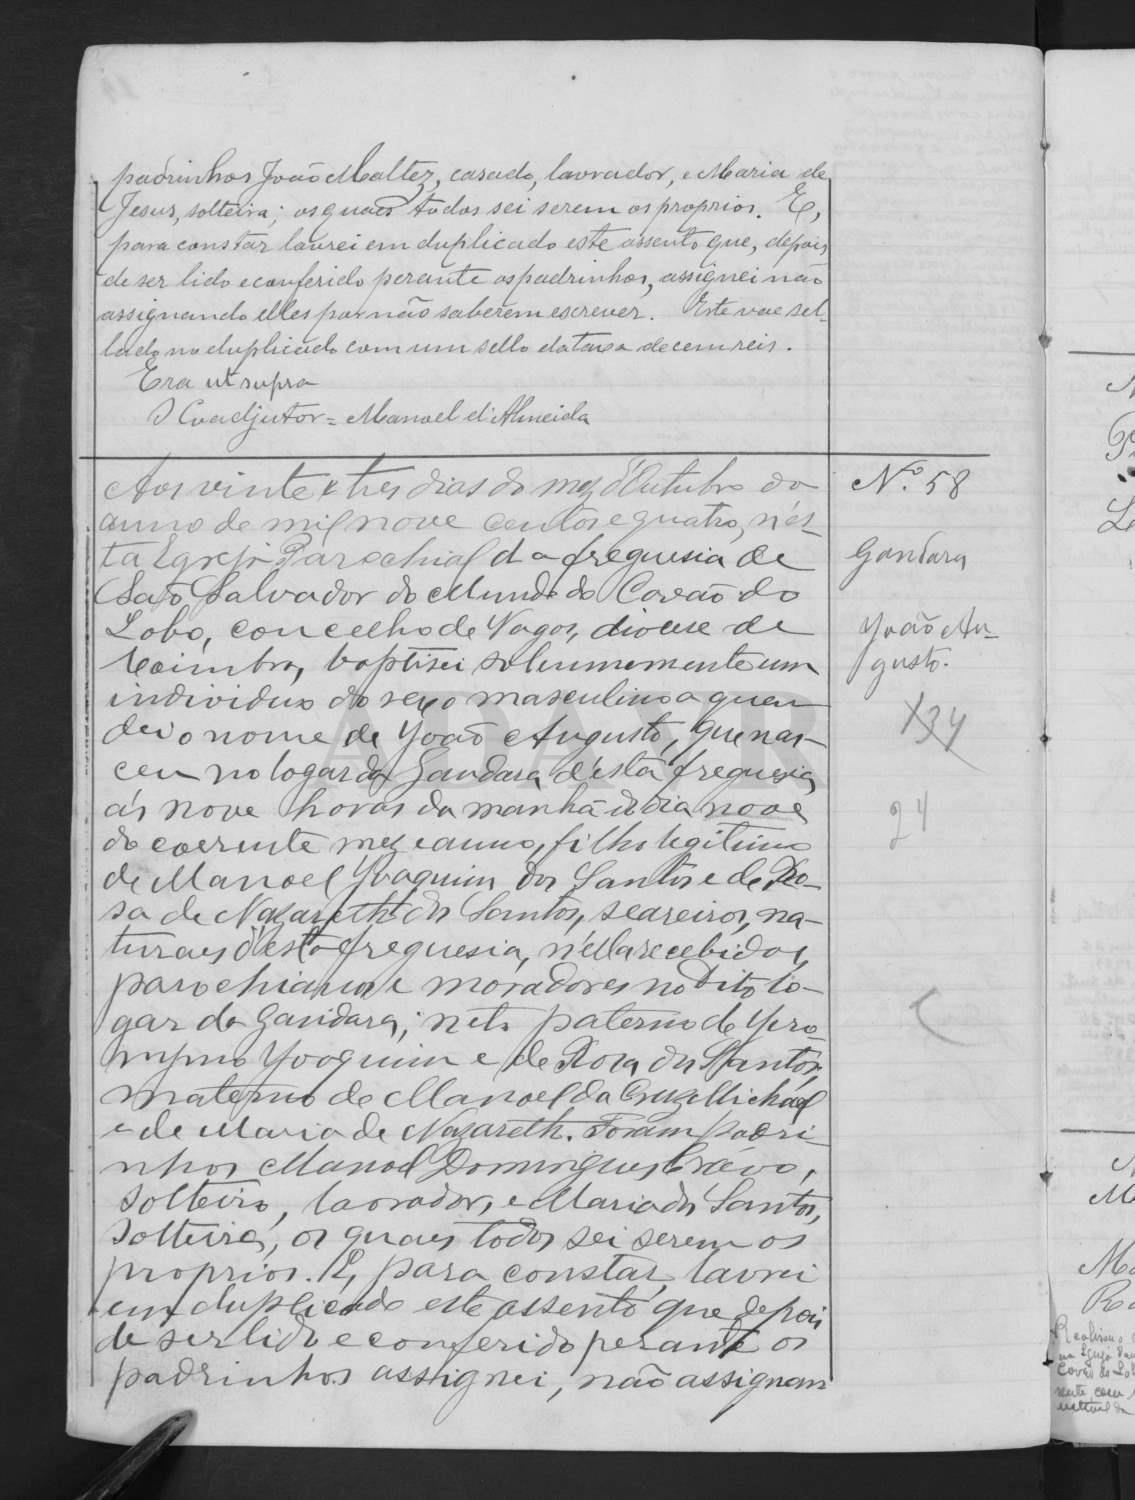 padrinhos João Maltez, casado, lavrador, e Maria de
Jesus, solteira; os quaes todos sei serem os proprios. E,
para constar lavrei em duplicado este assento que, depois
de ser lido e conferido perante os padrinhos, assignei não
assignando elles por não saberem escrever. Este vae sel-
lado no duplicado com um sello da taxa de cem reis.
Era ut supra
O Coadjutor = Manoel d'Almeida
Aos vinte e tres dias do mez d'Outubro do
anno de mil nove centos e quatro, n'es-
ta Egreja Parochial da freguesia de
São Salvador do Mundo do Covão do
Lobo, concelho de Vagos, diocese de
Coimbra, baptisei solemnemente um
individuo do sexo masculino a quem
dei o nome de João Augusto, que nas-
ceu no logar da Gandara d'esta freguesia
ás nove horas da manhã do dia nove
do corrente mez e anno, filho legitimo
de Manoel Joaquim dos Santos e de Ro-
sa de Nazareth dos Santos, seareiros, na-
turaes d'esta freguesia, n'ella recebidos,
parochianos e moradores no dito lo-
gar da Gandara; neto paterno de Jero-
nymo Joaquim e de Rosa dos Santos,
materno de Manoel da Cruz Michael
e de Maria de Nazareth. Foram padri-
nhos Manoel Domingues Crávo,
solteiro, lavrador, e Maria dos Santos,
solteira, os quaes todos sei serem os
proprios. E, para constar, lavrei
em duplicado este assento que depois
de ser lido e conferido perante os
padrinhos assignei, não assignam
N.º 58
Gandara
João Au-
gusto.
X34
24